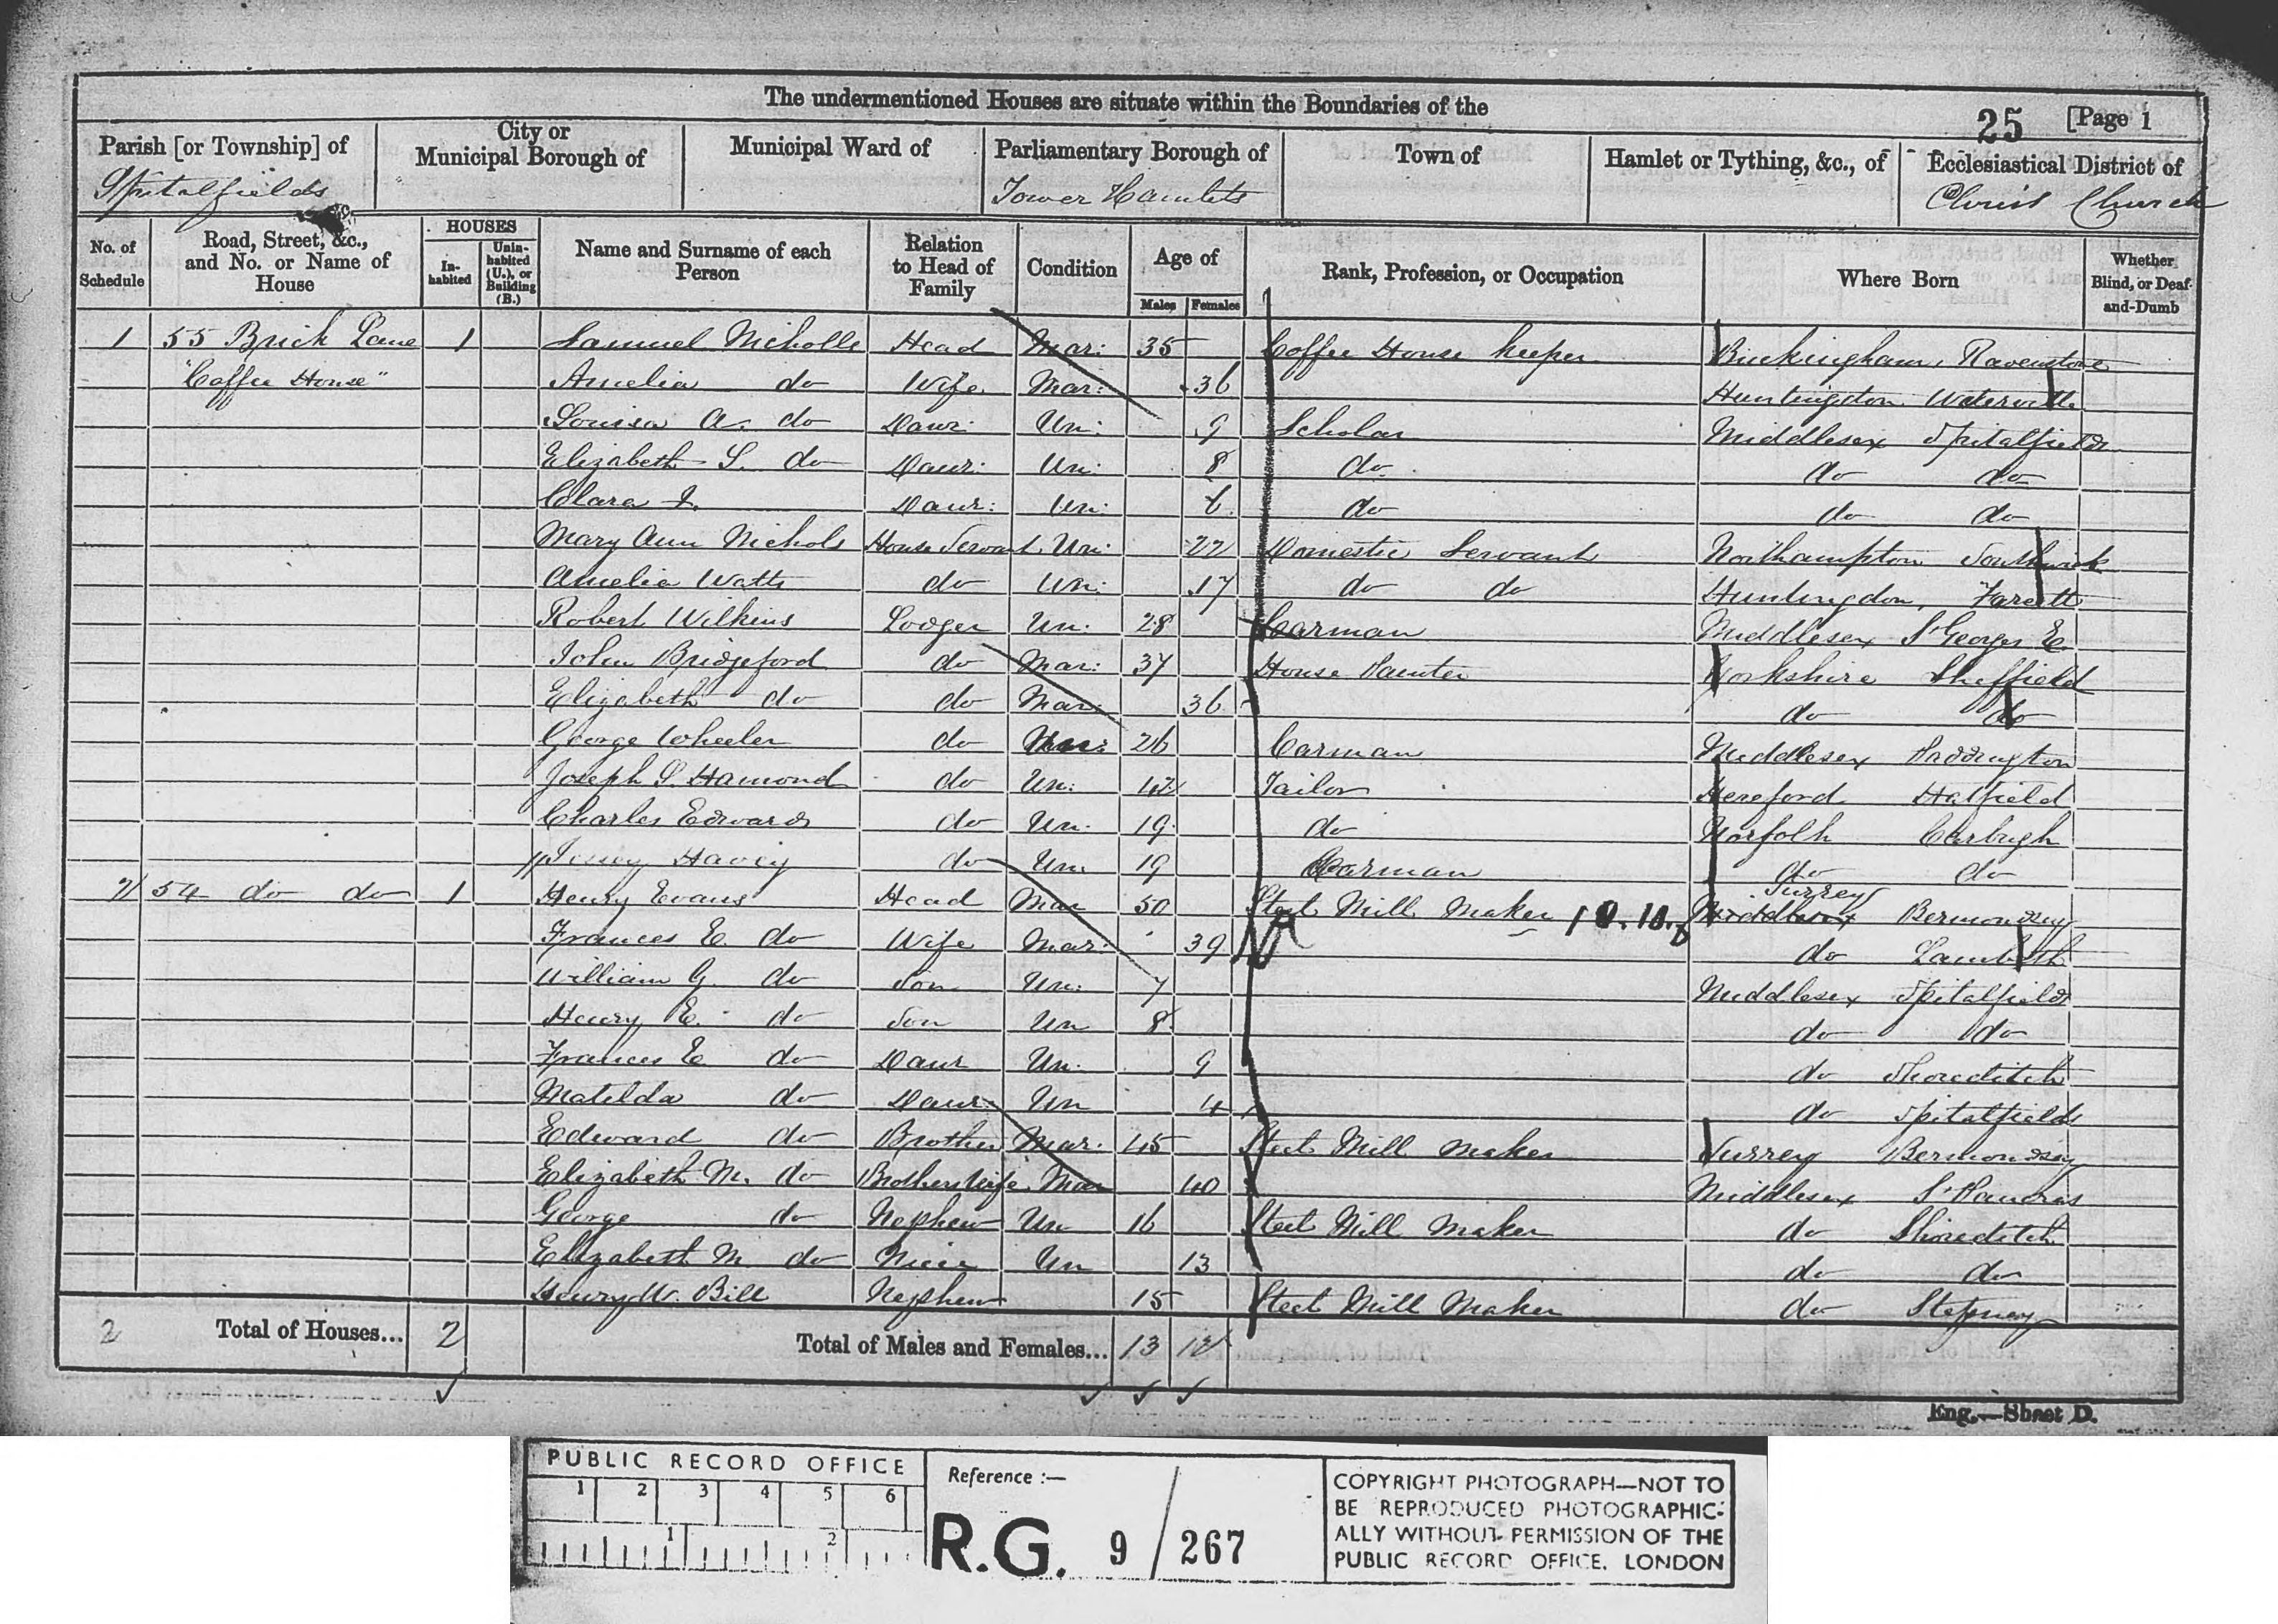 The undermentioned Houses are situate within the Boundaries of the
25 [Page 1
Parish [or Township] of
Spitalfields
City or Municipal Borough of
Municipal Ward of
Parliamentary Borough of
Tower Hamlets
Town of
Hamlet or Tything, &c., of
Ecclesiastical District of
Christ Church
No. of Schedule
Road, Street, &c., and No. or Name of House
HOUSES
In-habited
Unin-habited (U.), or Building (B.)
Name and Surname of each Person
Relation to Head of Family
Condition
Age of
Males Females
Rank, Profession, or Occupation
Where Born
Whether Blind, or Deaf-and-Dumb
1 55 Brick Lane 1 Samuel Nicholls Head Mar: 35 Coffee House keeper Buckingham, Ravenstone
"Coffee House" Amelia do Wife Mar: 36 Huntingdon
Louisa A. do Daur: Un: 9 Scholar Middlesex Spitalfields
Elizabeth S. do Daur: Un: 8 do do do
Clara Daur: Un: 6 do do do
Mary Ann Nichols House Servant Un: 22 Domestic Servant Northampton Southwick
Amelia Watts do Un: 17 do do Huntingdon, Farcett
Robert Wilkins Lodger Un: 28 Carman Middlesex St Georges E.
John Bridgeford do Mar: 37 House Painter Yorkshire Sheffield
Elizabeth do do Mar: 36 do do
George Wheeler do 26 Carman Middlesex Paddington
Joseph S. Hamond do Un: Tailor Hereford Hatfield
Charles Edwards do Un: 19 do Norfolk
do Un: 19 Carman do do
2 54 do do 1 Henry Evans Head Mar 50 Steel Mill Maker 10.10. Middlesex Surrey Bermondsey
Frances E. do Wife Mar: 39 do Lambeth
William G. do Son Un: 7 Middlesex Spitalfields
Henry E. do Son Un 8 do do
Frances E do Daur Un: 9 do Shoreditch
Matilda do Daur: Un 4 do Spitalfields
Edward do Brother Mar: 45 Steel Mill Maker Surrey Bermondsey
Elizabeth M. do Brothers Wife Mar 40 Middlesex St Pancras
George do Nephew Un 16 Steel Mill Maker do Shoreditch
Elizabeth M. do Niece Un 13 do do
Henry W. Bill Nephew 15 Steel Mill Maker do Stepney
2 Total of Houses... 2 Total of Males and Females... 13 12
Eng.—Sheet D.
PUBLIC RECORD OFFICE
1 2 3 4 5 6
1 2
Reference :—
R.G. 9 / 267
COPYRIGHT PHOTOGRAPH—NOT TO
BE REPRODUCED PHOTOGRAPHIC-
ALLY WITHOUT PERMISSION OF THE
PUBLIC RECORD OFFICE, LONDON